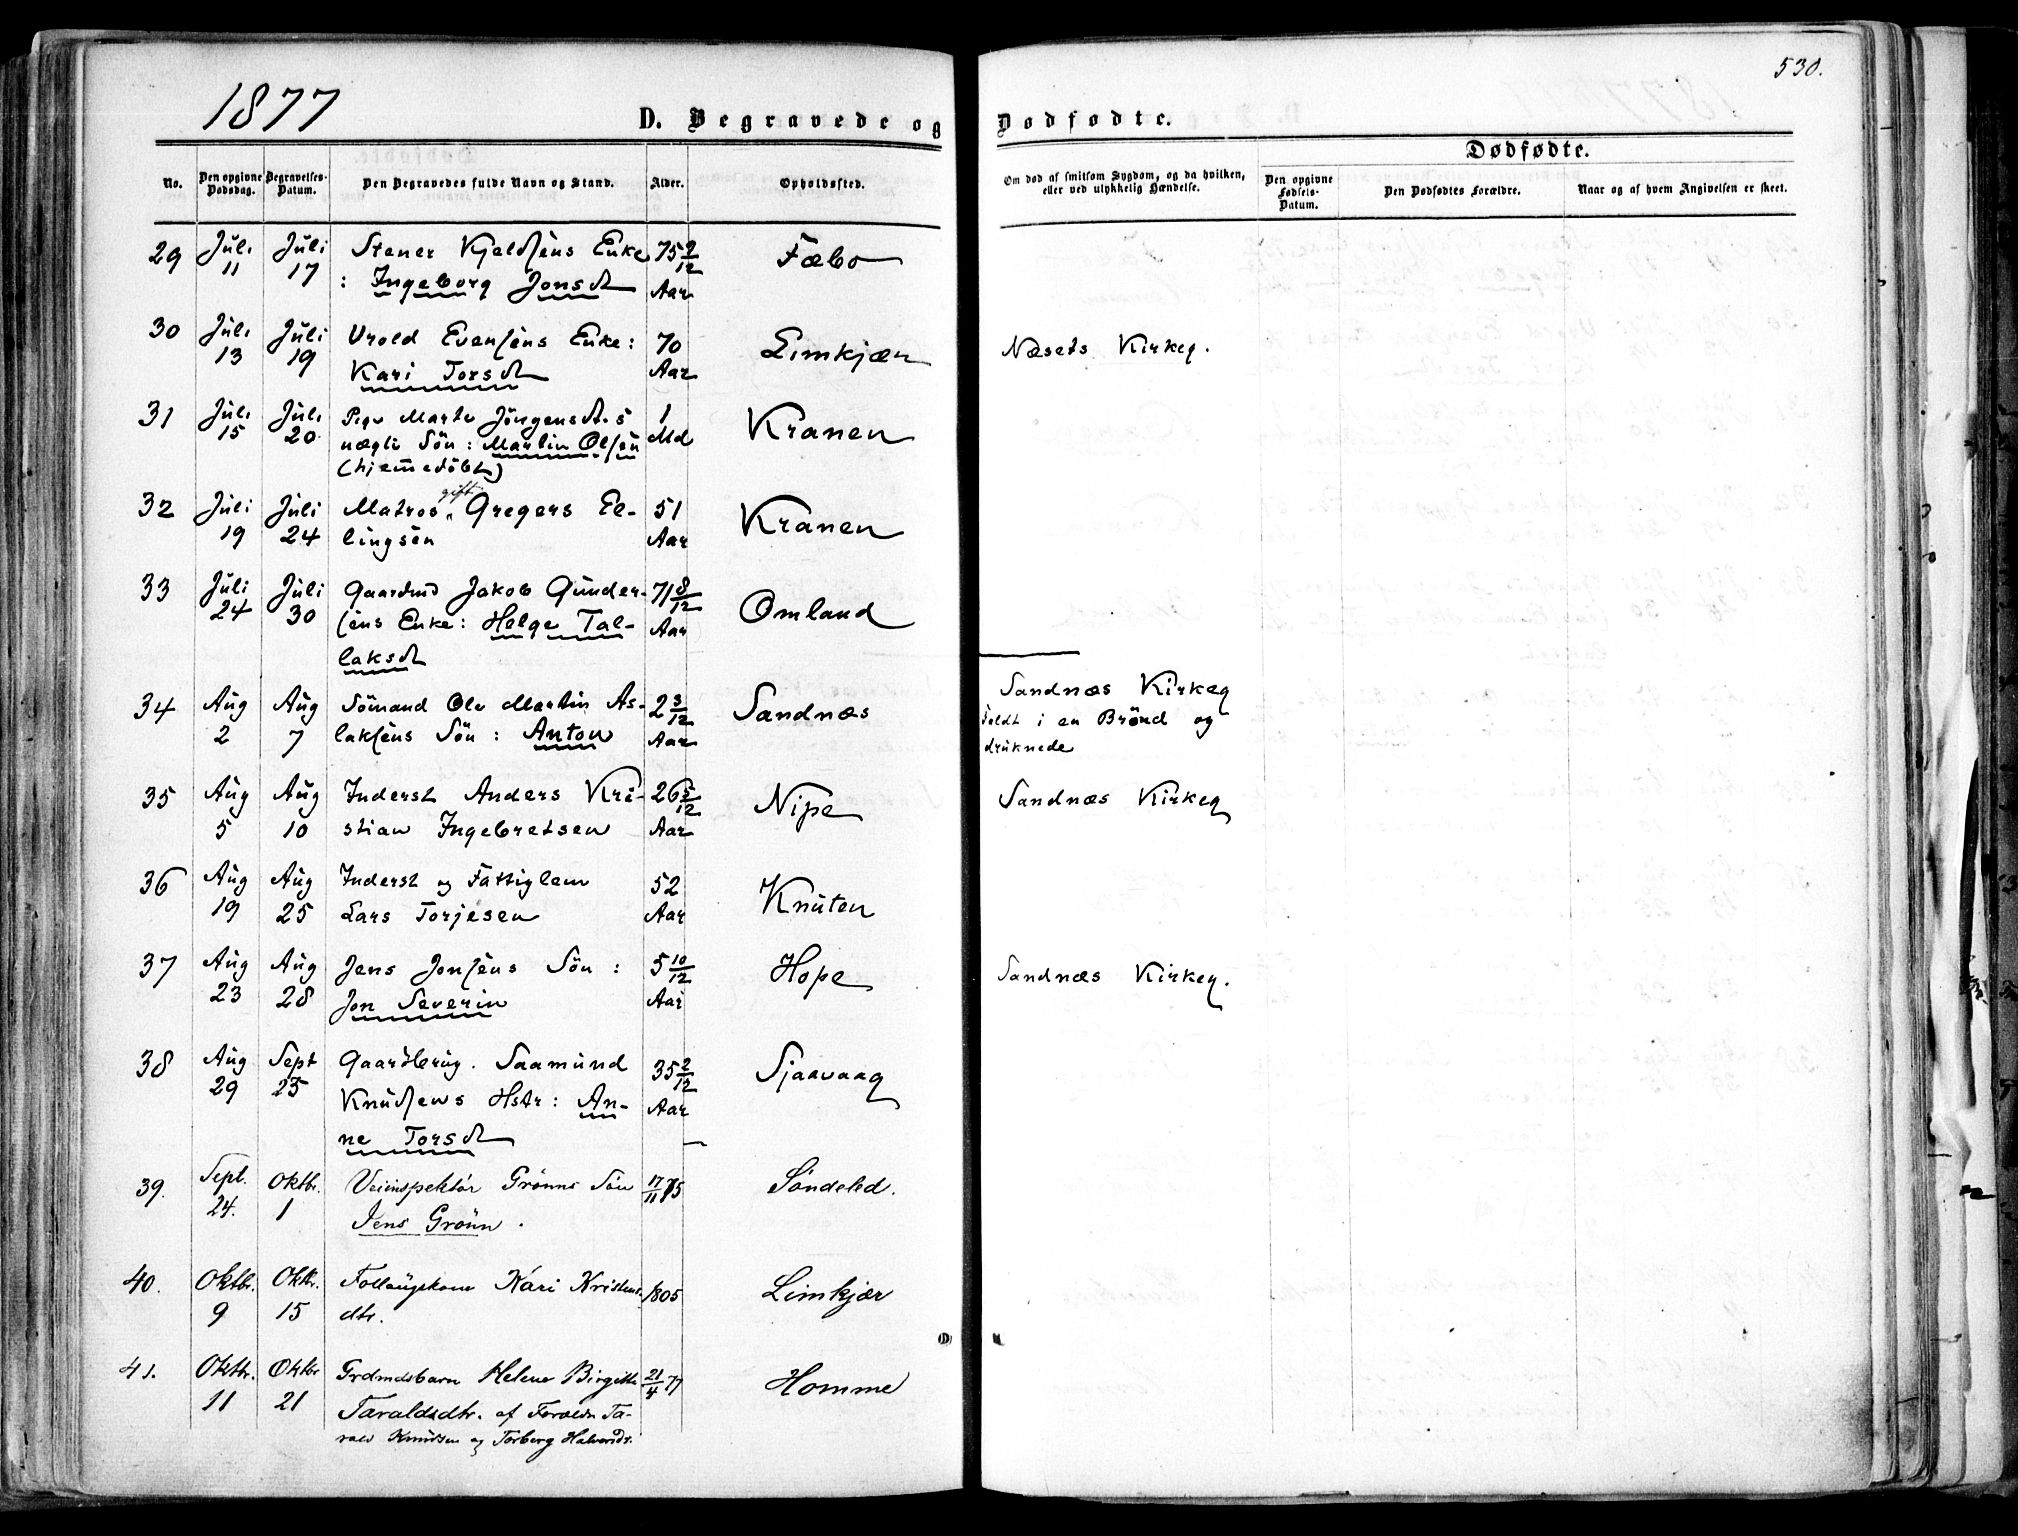 1877
530.
D. Begravede og Dødfødte.
No.
Den opgivne Dødsdag.
Begravelses-Datum.
Den Begravedes fulde Navn og Stand.
Alder.
Opholdssted.
Om død af smitsom Sygdom, og da hvilken, eller ved ulykkelig Hændelse.
Dødfødte.
Den opgivne Fødsels-Datum.
Den Dødfødtes Forældre.
Naar og af hvem Angivelsen er skeet.
29 Juli 11 Juli 17 Stener Kjeldsens Enke 75 2/12 Aar Fæbo
: Ingeborg Jonsdt
30 Juli 13 Juli 19 Vrold Evensens Enke: 70 Aar Limkjær Næsets Kirkeg.
Kari Torsdt
31 Juli 15 Juli 20 Pige Marte Jörgensdt.s 1 Md Kranen
uægte Sön: Martin Olsen
(hjemedöbt)
32 Juli 19 Juli 24 Matros gift Gregers El- 51 Aar Kranen
lingsen
33 Juli 24 Juli 30 Gaardmd Jakob Gunder- 71 8/12 Aar Omland
sens Enke: Helge Tal-
laksdt
34 Aug 2 Aug 7 Sömand Ole Martin As- 2 3/12 Aar Sandnæs Sandnæs Kirkeg
laksens Sön: Anton
Faldt i en Brönd og
druknede
35 Aug 5 Aug 10 Inderst Anders Kri- 26 5/12 Aar Nipe Sandnæs Kirkeg
stian Ingebretsen
36 Aug 19 Aug 25 Inderst og Fattiglem 52 Aar Knuten
Lars Torjesen
37 Aug 23 Aug 28 Jens Jonsens Sön: 5 10/12 Aar Hope Sandnæs Kirkeg.
Jon Severin
38 Aug 29 Sept Gaardbrug. Saamund 35 2/12 Aar Sjaavaag
Knudsens Hstr: An-
ne Torsdt
39. Sept. 24. Oktbr. 1 Veiinspektör Grönns Sön 17/11 75 Söndeled.
Jens Grönn.
40. Oktbr. 9 Oktbr. 15 Kari Kristens- 1805 Limkjær
dtr.
41. Oktbr. 11 Oktbr 21 Grdmdsbarn Helene Birgitte 21/4 77 Homme
Taraldsdtr. af Foreldre Ta-
rald Knudsen og Torborg Halvorsdt.